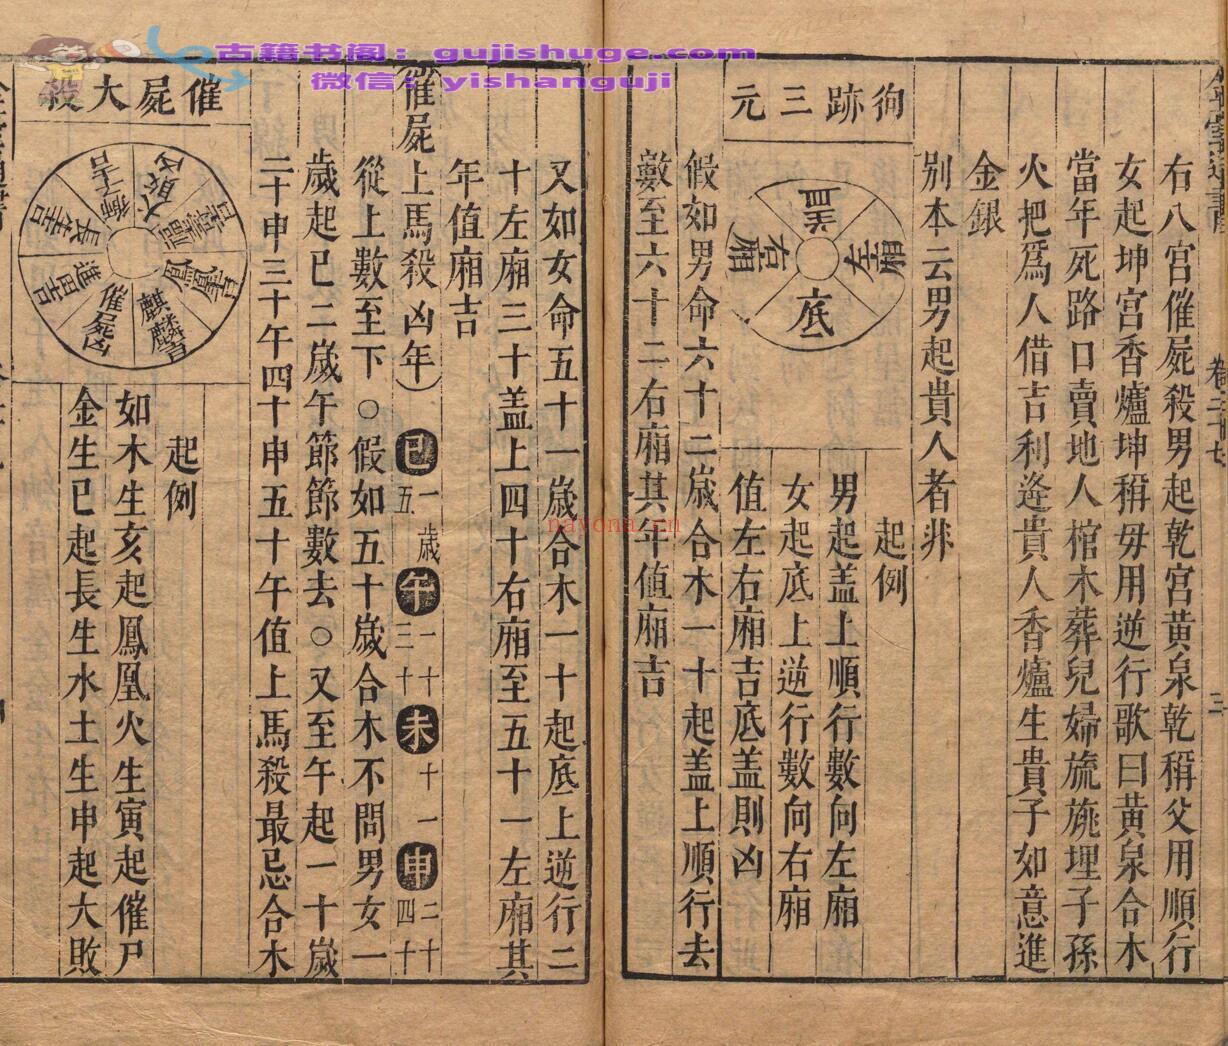 古籍书阁：gujishuge.com
微信：yishanguji
nayona.cn
卷二十七
三
右八宮催屍殺男起乾宮黃泉乾稱父用順行
女起坤宮香爐坤稱毋用逆行歌曰黃泉合木
當年死路口賣地人棺木葬兒婦旒旐埋子孫
火把爲人借吉利逄貴人香爐生貴子如意進
金銀
別本云男起貴人者非
徇跡三元
蓋
左廂
右廂
底
起例
男起盖上順行數向左廂
女起底上逆行數向右廂
值左右廂吉底盖則凶
假如男命六十二歲合木一十起盖上順行去
數至六十二右廂其年值廂吉
又如女命五十一歲合木一十起底上逆行二
十左廂三十盖上四十右廂至五十一左廂其
年值廂吉
催屍上馬殺凶年
巳 一歲 五
午 一十 三十
未 十一
申 二十 四十
從上數至下○假如五十歲合木不問男女一
歲起巳二歲午節節數去○又至午起一十歲
二十申三十午四十申五十午值上馬殺最忌合木
催屍大殺
大敗凶
鳳凰吉
麒麟吉
催屍凶
進田吉
長生吉
獅子吉
起例
如木生亥起鳳凰火生寅起催尸
金生巳起長生水土生申起大敗